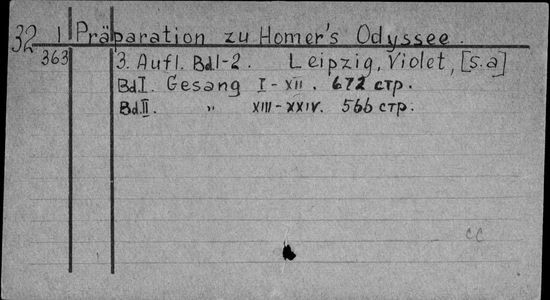 32 1 Präparation zu Homer's Odyssee.
363 3. Aufl. Bd.1-2. Leipzig, Violet, [s.a]
Bd.I. Gesang I-XII. 672 стр.
Bd.II. " XIII-XXIV. 566 стр.
CC